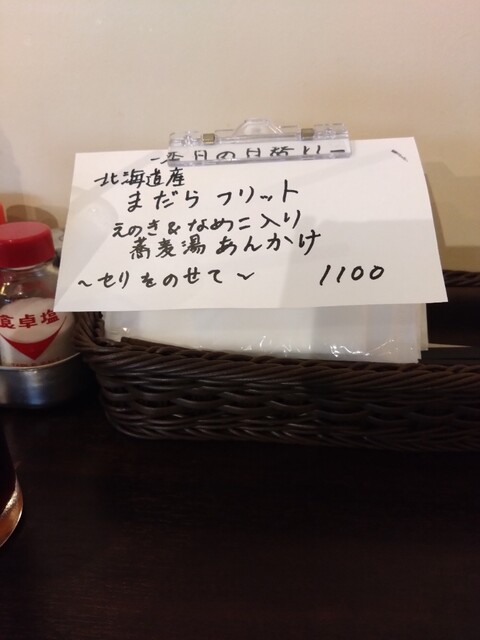 -本日の日替り-
北海道産
まだら フリット
えのき&なめこ入り
蕎麦湯あんかけ
~セリをのせて~ 1100
食卓塩